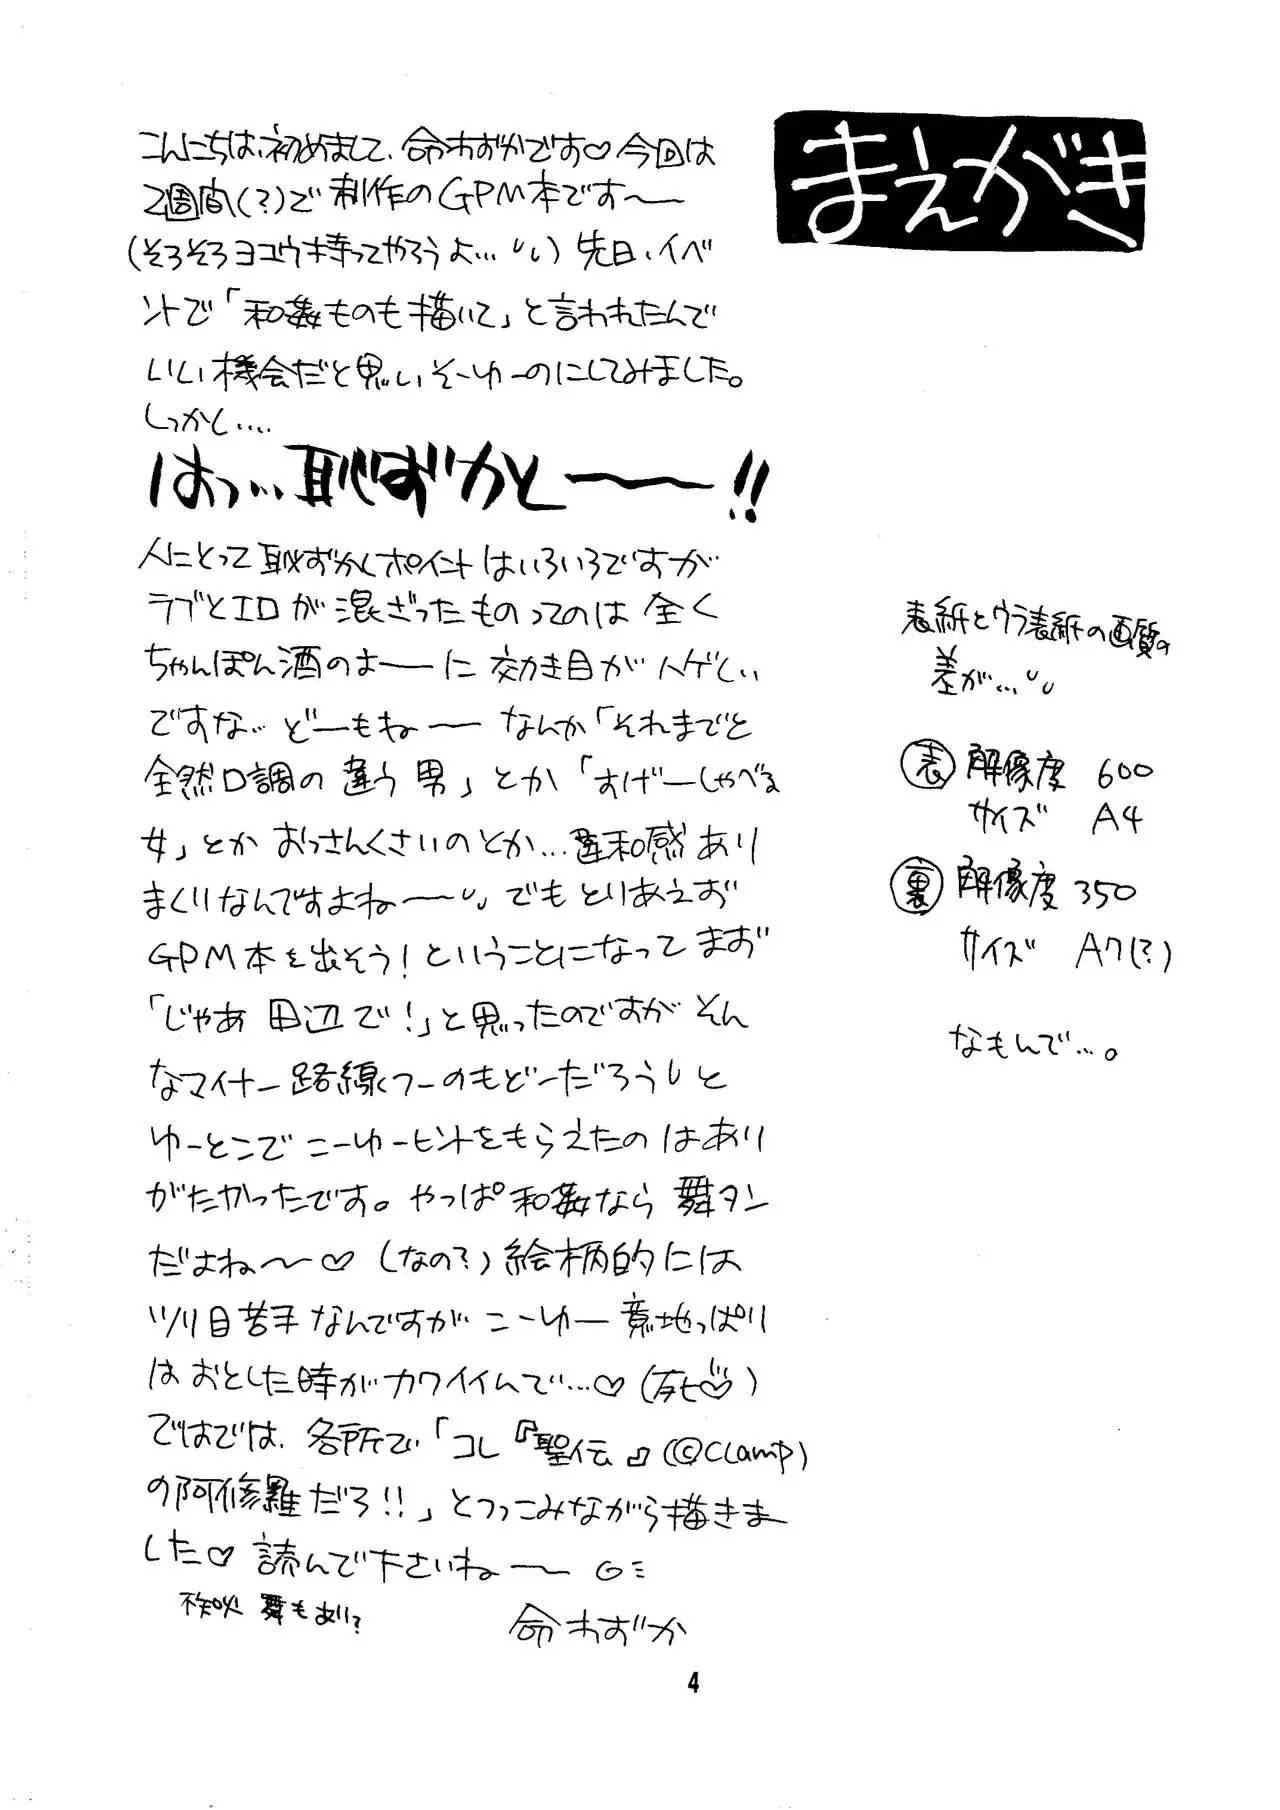 まえがき
こんにちは、初めまして、命わずかです♡今回は
2週間(?)で制作のGPM本です〜〜
(そろそろヨユウ持ってやろうよ…) 先日、イベ
ントで「和姦ものも描いて」と言われたんで
いい機会だと思いそーゆーのにしてみました。
しっかし‥‥
はっ…恥ずかしー〜〜!!
人にとって恥ずかしポイントはいろいろですが
ラブとエロが混ざったものってのは全く
ちゃんぽん酒のよーーに効き目がハゲしい
ですな… どーもねー〜 なんか「それまでと
全然口調の違う男」とか「すげーしゃべる
女」とかおっさんくさいのとか…違和感あり
まくりなんですよね〜〜 でもとりあえず
GPM本を出そう!ということになってまず
「じゃあ田辺で!」と思ったのですがそん
なマイナー路線くうーのもどーだろうと
ゆーとこでこーゆーヒントをもらえたのはあり
がたかったです。やっぱ和姦なら舞タン
だよね〜♡(なの?)絵柄的には
ツリ目苦手なんですがこーゆー意地っぱり
はおとした時がカワイイんで…♡(死♡)
ではでは、各所で「コレ『聖伝』(©CLAMP)
の阿修羅だろ!!」とつっこみながら描きま
した♡読んで下さいねー〜
舞もあり?
命わずか
表紙とウラ表紙の画質の
差が…
表 解像度 600
サイズ A4
裏 解像度 350
サイズ A7(?)
なもんで…。
4